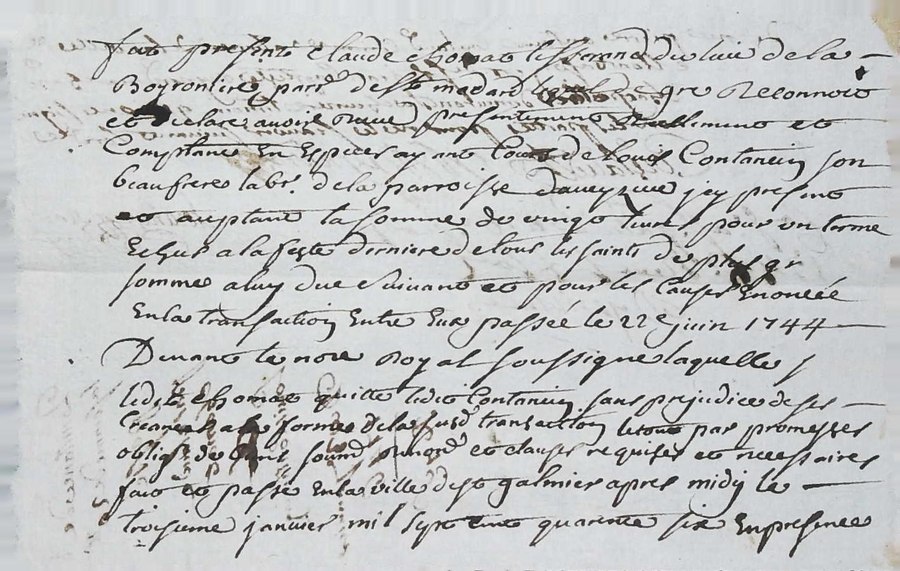 fut present Claude Thomas tisserand du lieu de la
Boyronnière parr. de St medard lequel de gre Reconnoit
et declare avoir Receu presentement Reellement et
Comptant En Especes ayant Cours de Louis Contancin son
beaufrere labr. de la parroisse d'aveyzieu jcy present
et acceptant la somme de vingt livres pour un terme
Echus a la feste derniere de tous les saints de plus gr
somme a luy due suivant et pour les Causes Enoncée
En la transaction Entre Eux passée le 22e juin 1744
Devant le nore Royal soussigne laquelle s
ledit Thomas quitte ledit Contancin sans prejudice de ses
Creances a la forme de la susd. transaction le tout par promesses
oblig. de biens soumd. Renond. et clauses requises et necessaires
fait et passé En la ville de st galmier apres midy le
troisieme janvier mil sept cent quarente six En presence